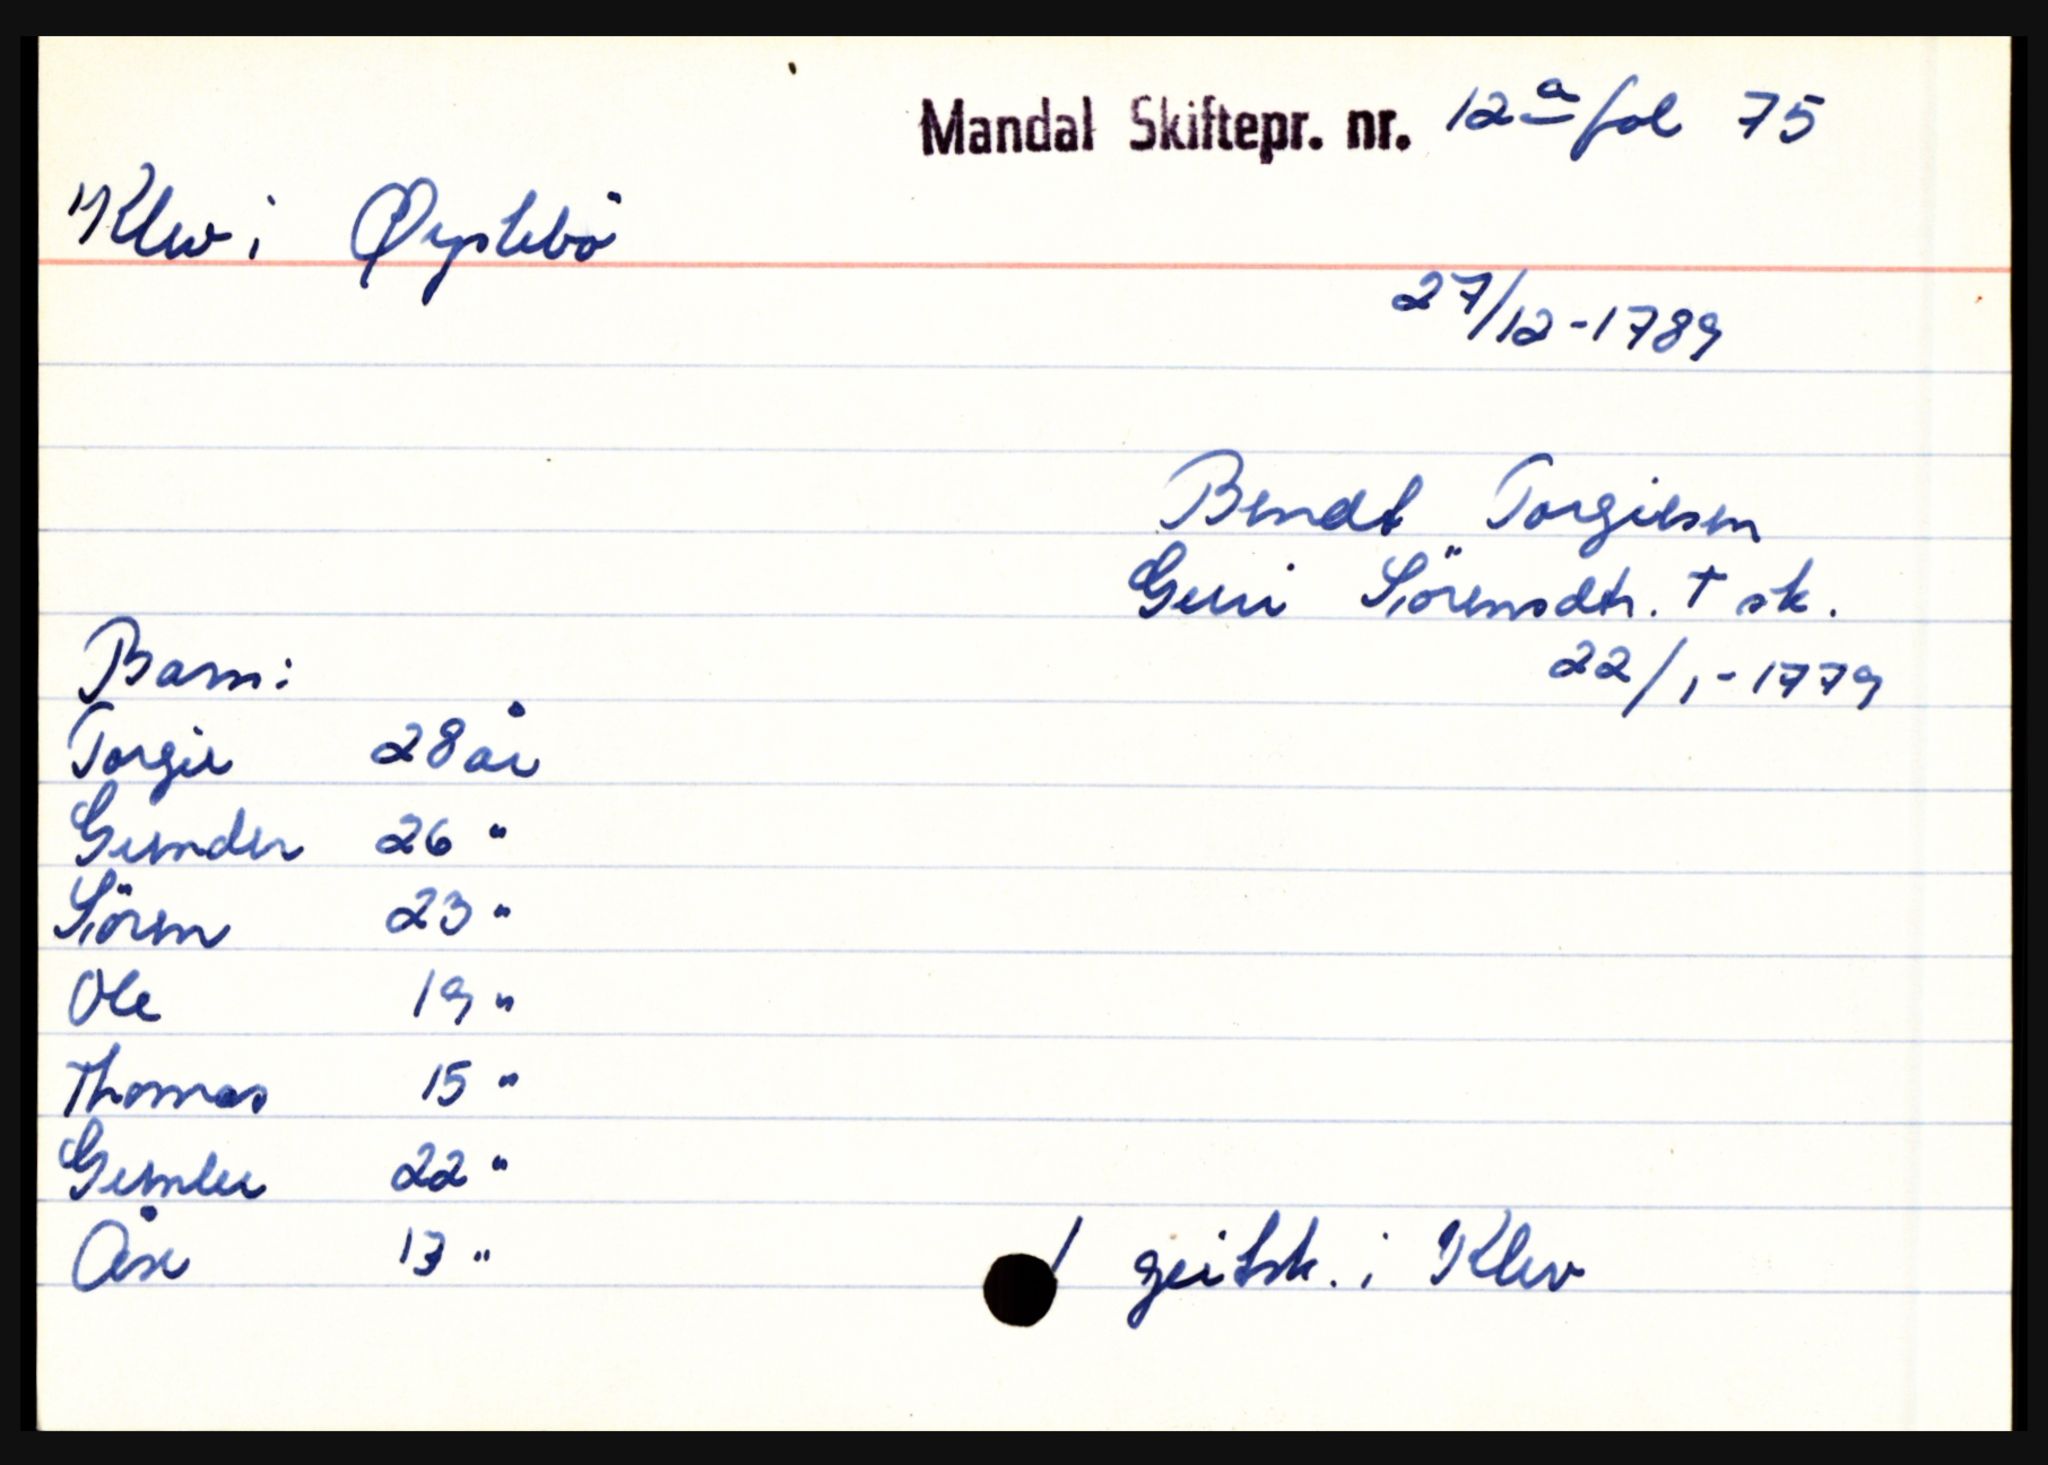 Mandal Skiftepr. nr. 12a fol 75
Klev i Øyslebö
27/12-1789
Bendt Torgilsen
Guri Sörensdtr. + sk.
22/1-1779
Barn:
Torgil 28 år
Gunder 26 "
Sören 23 "
Ole 19 "
Thomas 15 "
Gunlei 22 "
Åse 13 "
/ geitsk. i Klev